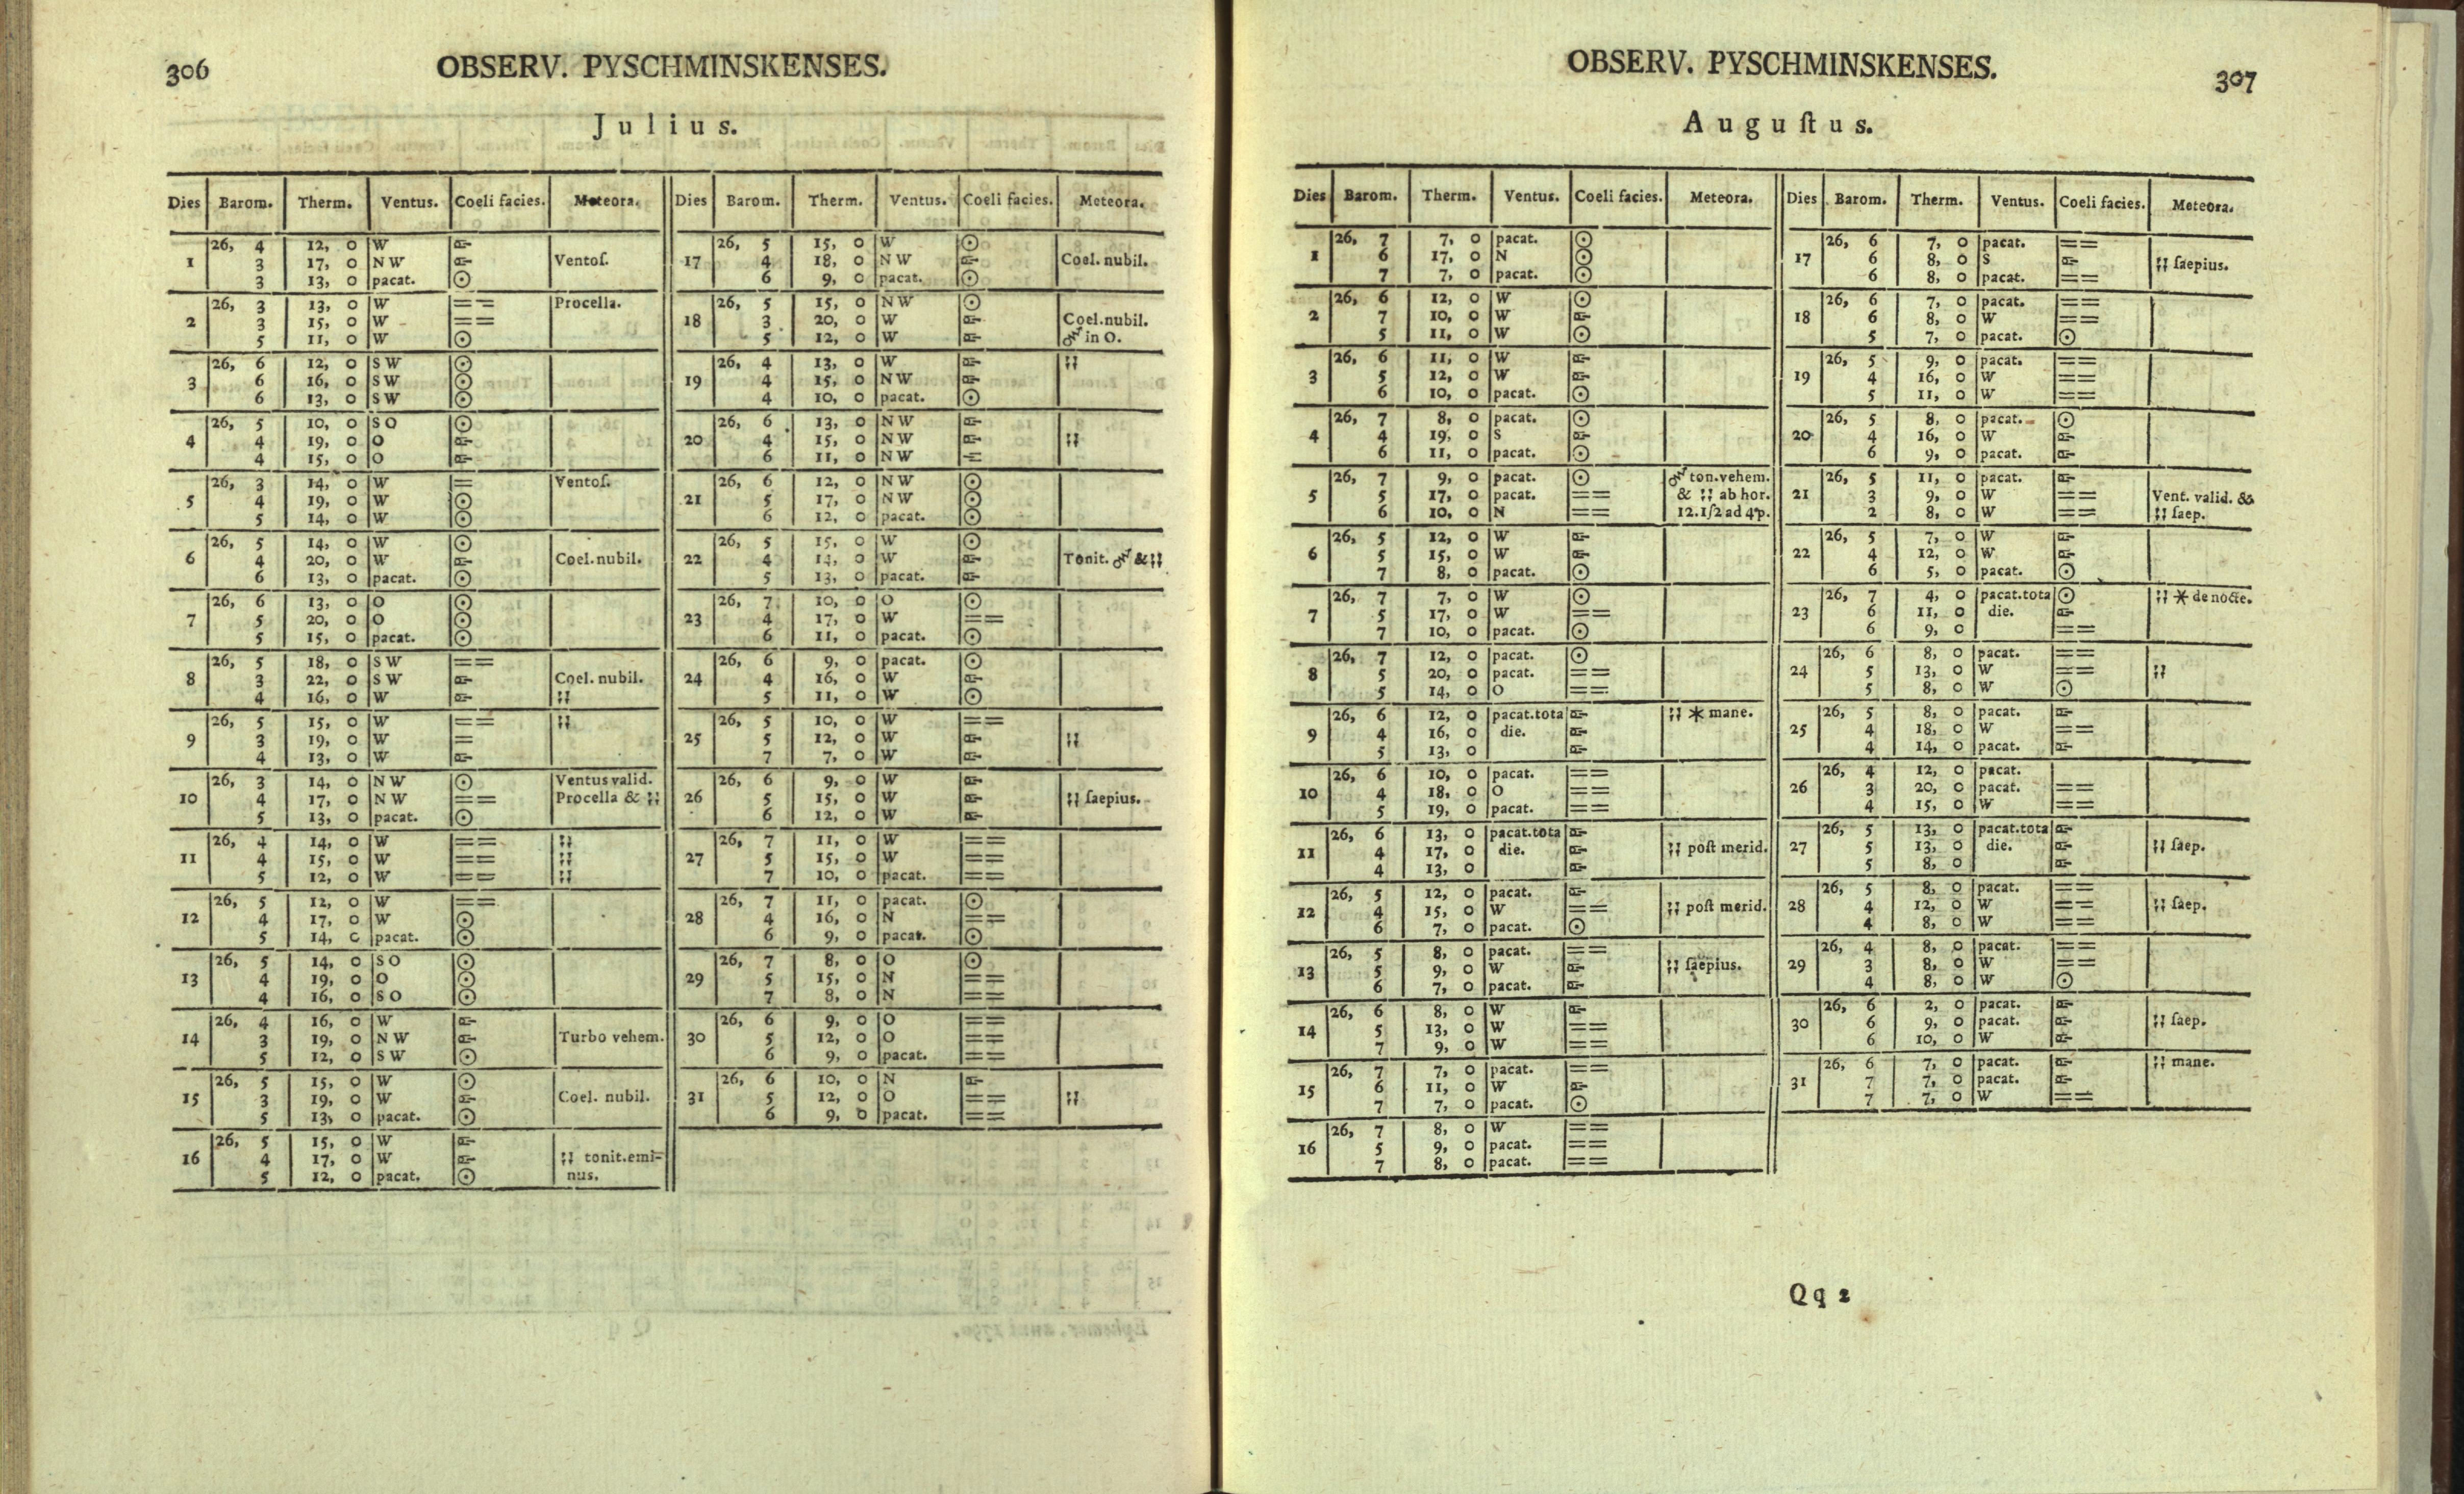 306
OBSERV. PYSCHMINSKENSES.
Julius.
Dies Barom. Therm. Ventus. Coeli facies. Meteora.
26, 4 12, 0 W
1 3 17, 0 NW Ventoſ.
3 13, 0 pacat. ⊙
26, 3 13, 0 W == Procella.
2 3 15, 0 W ==
5 11, 0 W ⊙
26, 6 12, 0 SW ⊙
3 6 16, 0 SW ⊙
6 13, 0 SW ⊙
26, 5 10, 0 SO ⊙
4 4 19, 0 O
4 15, 0 O
26, 3 14, 0 W = Ventoſ.
5 4 19, 0 W ⊙
5 14, 0 W ⊙
26, 5 14, 0 W ⊙
6 4 20, 0 W Coel. nubil.
6 13, 0 pacat. ⊙
26, 6 13, 0 O ⊙
7 5 20, 0 O ⊙
5 15, 0 pacat. ⊙
26, 5 18, 0 SW ==
8 3 22, 0 SW Coel. nubil.
4 16, 0 W
26, 5 15, 0 W ==
9 3 19, 0 W =
4 13, 0 W
26, 3 14, 0 NW ⊙ Ventus valid.
10 4 17, 0 NW == Procella &
5 13, 0 pacat. ⊙
26, 4 14, 0 W ==
11 4 15, 0 W ==
5 12, 0 W ==
26, 5 12, 0 W ==
12 4 17, 0 W ⊙
5 14, 0 pacat. ⊙
26, 5 14, 0 SO ⊙
13 4 19, 0 O ⊙
4 16, 0 SO ⊙
26, 4 16, 0 W
14 3 19, 0 NW Turbo vehem.
5 12, 0 SW ⊙
26, 5 15, 0 W ⊙
15 3 19, 0 W Coel. nubil.
5 13, 0 pacat. ⊙
26, 5 15, 0 W
16 4 17, 0 W tonit. emi-
5 12, 0 pacat. ⊙ nus.
Dies Barom. Therm. Ventus. Coeli facies. Meteora.
26, 5 15, 0 W ⊙
17 4 18, 0 NW Coel. nubil.
6 9, 0 pacat. ⊙
26, 5 15, 0 NW ⊙
18 3 20, 0 W Coel. nubil.
5 12, 0 W in O.
26, 4 13, 0 W
19 4 15, 0 NW
4 10, 0 pacat. ⊙
26, 6 13, 0 NW
20 4 15, 0 NW
6 11, 0 NW =
26, 6 12, 0 NW ⊙
21 5 17, 0 NW ⊙
6 12, 0 pacat. ⊙
26, 5 15, 0 W ⊙
22 4 0 W Tonit. &
5 13, 0 pacat.
26, 7 10, 0 O ⊙
23 4 17, 0 W ==
6 11, 0 pacat. ⊙
26, 6 9, 0 pacat. ⊙
24 4 16, 0 W
5 11, 0 W ⊙
26, 5 10, 0 W ==
25 5 12, 0 W
7 7, 0 W
26, 6 9, 0 W
26 5 15, 0 W ſaepius.
6 12, 0 W
26, 7 11, 0 W ==
27 5 15, 0 W ==
7 10, 0 pacat. ==
26, 7 11, 0 pacat. ⊙
28 4 16, 0 N ==
6 9, 0 pacat. ⊙
26, 7 8, 0 O ⊙
29 5 15, 0 N ==
7 8, 0 N ==
26, 6 9, 0 O ==
30 5 12, 0 O ==
6 9, 0 pacat. ==
26, 6 10, 0 N
31 5 12, 0 O ==
6 9, 0 pacat. ==
OBSERV. PYSCHMINSKENSES.
307
Auguſtus.
Dies Barom. Therm. Ventus. Coeli facies. Meteora.
26, 7 7, 0 pacat. ⊙
1 6 17, 0 N ⊙
7 7, 0 pacat. ⊙
26, 6 12, 0 W ⊙
2 7 10, 0 W
5 11, 0 W ⊙
26, 6 11, 0 W
3 5 12, 0 W
6 10, 0 pacat. ⊙
26, 7 8, 0 pacat. ⊙
4 4 19, 0 S
6 11, 0 pacat. ⊙
26, 7 9, 0 pacat. ⊙ ton. vehem.
5 5 17, 0 pacat. == & ab hor.
6 10, 0 N == 12. 1/2 ad 4 p.
26, 5 12, 0 W
6 5 15, 0 W
7 8, 0 pacat. ⊙
26, 7 7, 0 W ⊙
7 5 17, 0 W ==
7 10, 0 pacat. ⊙
26, 7 12, 0 pacat. ⊙
8 5 20, 0 pacat. ==
5 14, 0 O ==
26, 6 12, 0 pacat. tota mane.
9 4 16, 0 die.
5 13, 0
26, 6 10, 0 pacat. ==
10 4 18, 0 O ==
5 19, 0 pacat. ==
26, 6 13, 0 pacat. tota
11 4 17, 0 die. poſt merid.
4 13, 0
26, 5 12, 0 pacat.
12 4 15, 0 W == poſt merid.
6 7, 0 pacat. ⊙
26, 5 8, 0 pacat. ==
13 5 9, 0 W ſaepius.
6 7, 0 pacat.
26, 6 8, 0 W
14 5 13, 0 W ==
7 9, 0 W ==
26, 7 7, 0 pacat. ==
15 6 11, 0 W
7 7, 0 pacat. ⊙
26, 7 8, 0 W ==
16 5 9, 0 pacat. ==
7 8, 0 pacat. ==
Dies Barom. Therm. Ventus. Coeli facies. Meteora.
26, 6 7, 0 pacat. ==
17 6 8, 0 S ſaepius.
6 8, 0 pacat. ==
26, 6 7, 0 pacat. ==
18 6 8, 0 W ==
5 7, 0 pacat. ⊙
26, 5 9, 0 pacat. ==
19 4 16, 0 W ==
5 11, 0 W ==
26, 5 8, 0 pacat. ⊙
20 4 16, 0 W
6 9, 0 pacat.
26, 5 11, 0 pacat.
21 3 9, 0 W == Vent. valid. &
2 8, 0 W == ſaep.
26, 5 7, 0 W
22 4 12, 0 W
6 5, 0 pacat. ⊙
26, 7 4, 0 pacat. tota ⊙ de nocte.
23 6 11, 0 die.
6 9, 0 ==
26, 6 8, 0 pacat. ==
24 5 13, 0 W ==
5 8, 0 W ⊙
26, 5 8, 0 pacat.
25 4 18, 0 W ==
4 14, 0 pacat.
26, 4 12, 0 pacat.
26 3 20, 0 pacat. ==
4 15, 0 W ==
26, 5 13, 0 pacat. tota
27 5 13, 0 die. ſaep.
5 8, 0
26, 5 8, 0 pacat. ==
28 4 12, 0 W == ſaep.
4 8, 0 W ==
26, 4 8, 0 pacat. ==
29 3 8, 0 W ==
4 8, 0 W ⊙
26, 6 2, 0 pacat.
30 6 9, 0 pacat. ſaep.
6 10, 0 W
26, 6 7, 0 pacat. mane.
31 7 7, 0 pacat.
7 7, 0 W ==
Qq 2